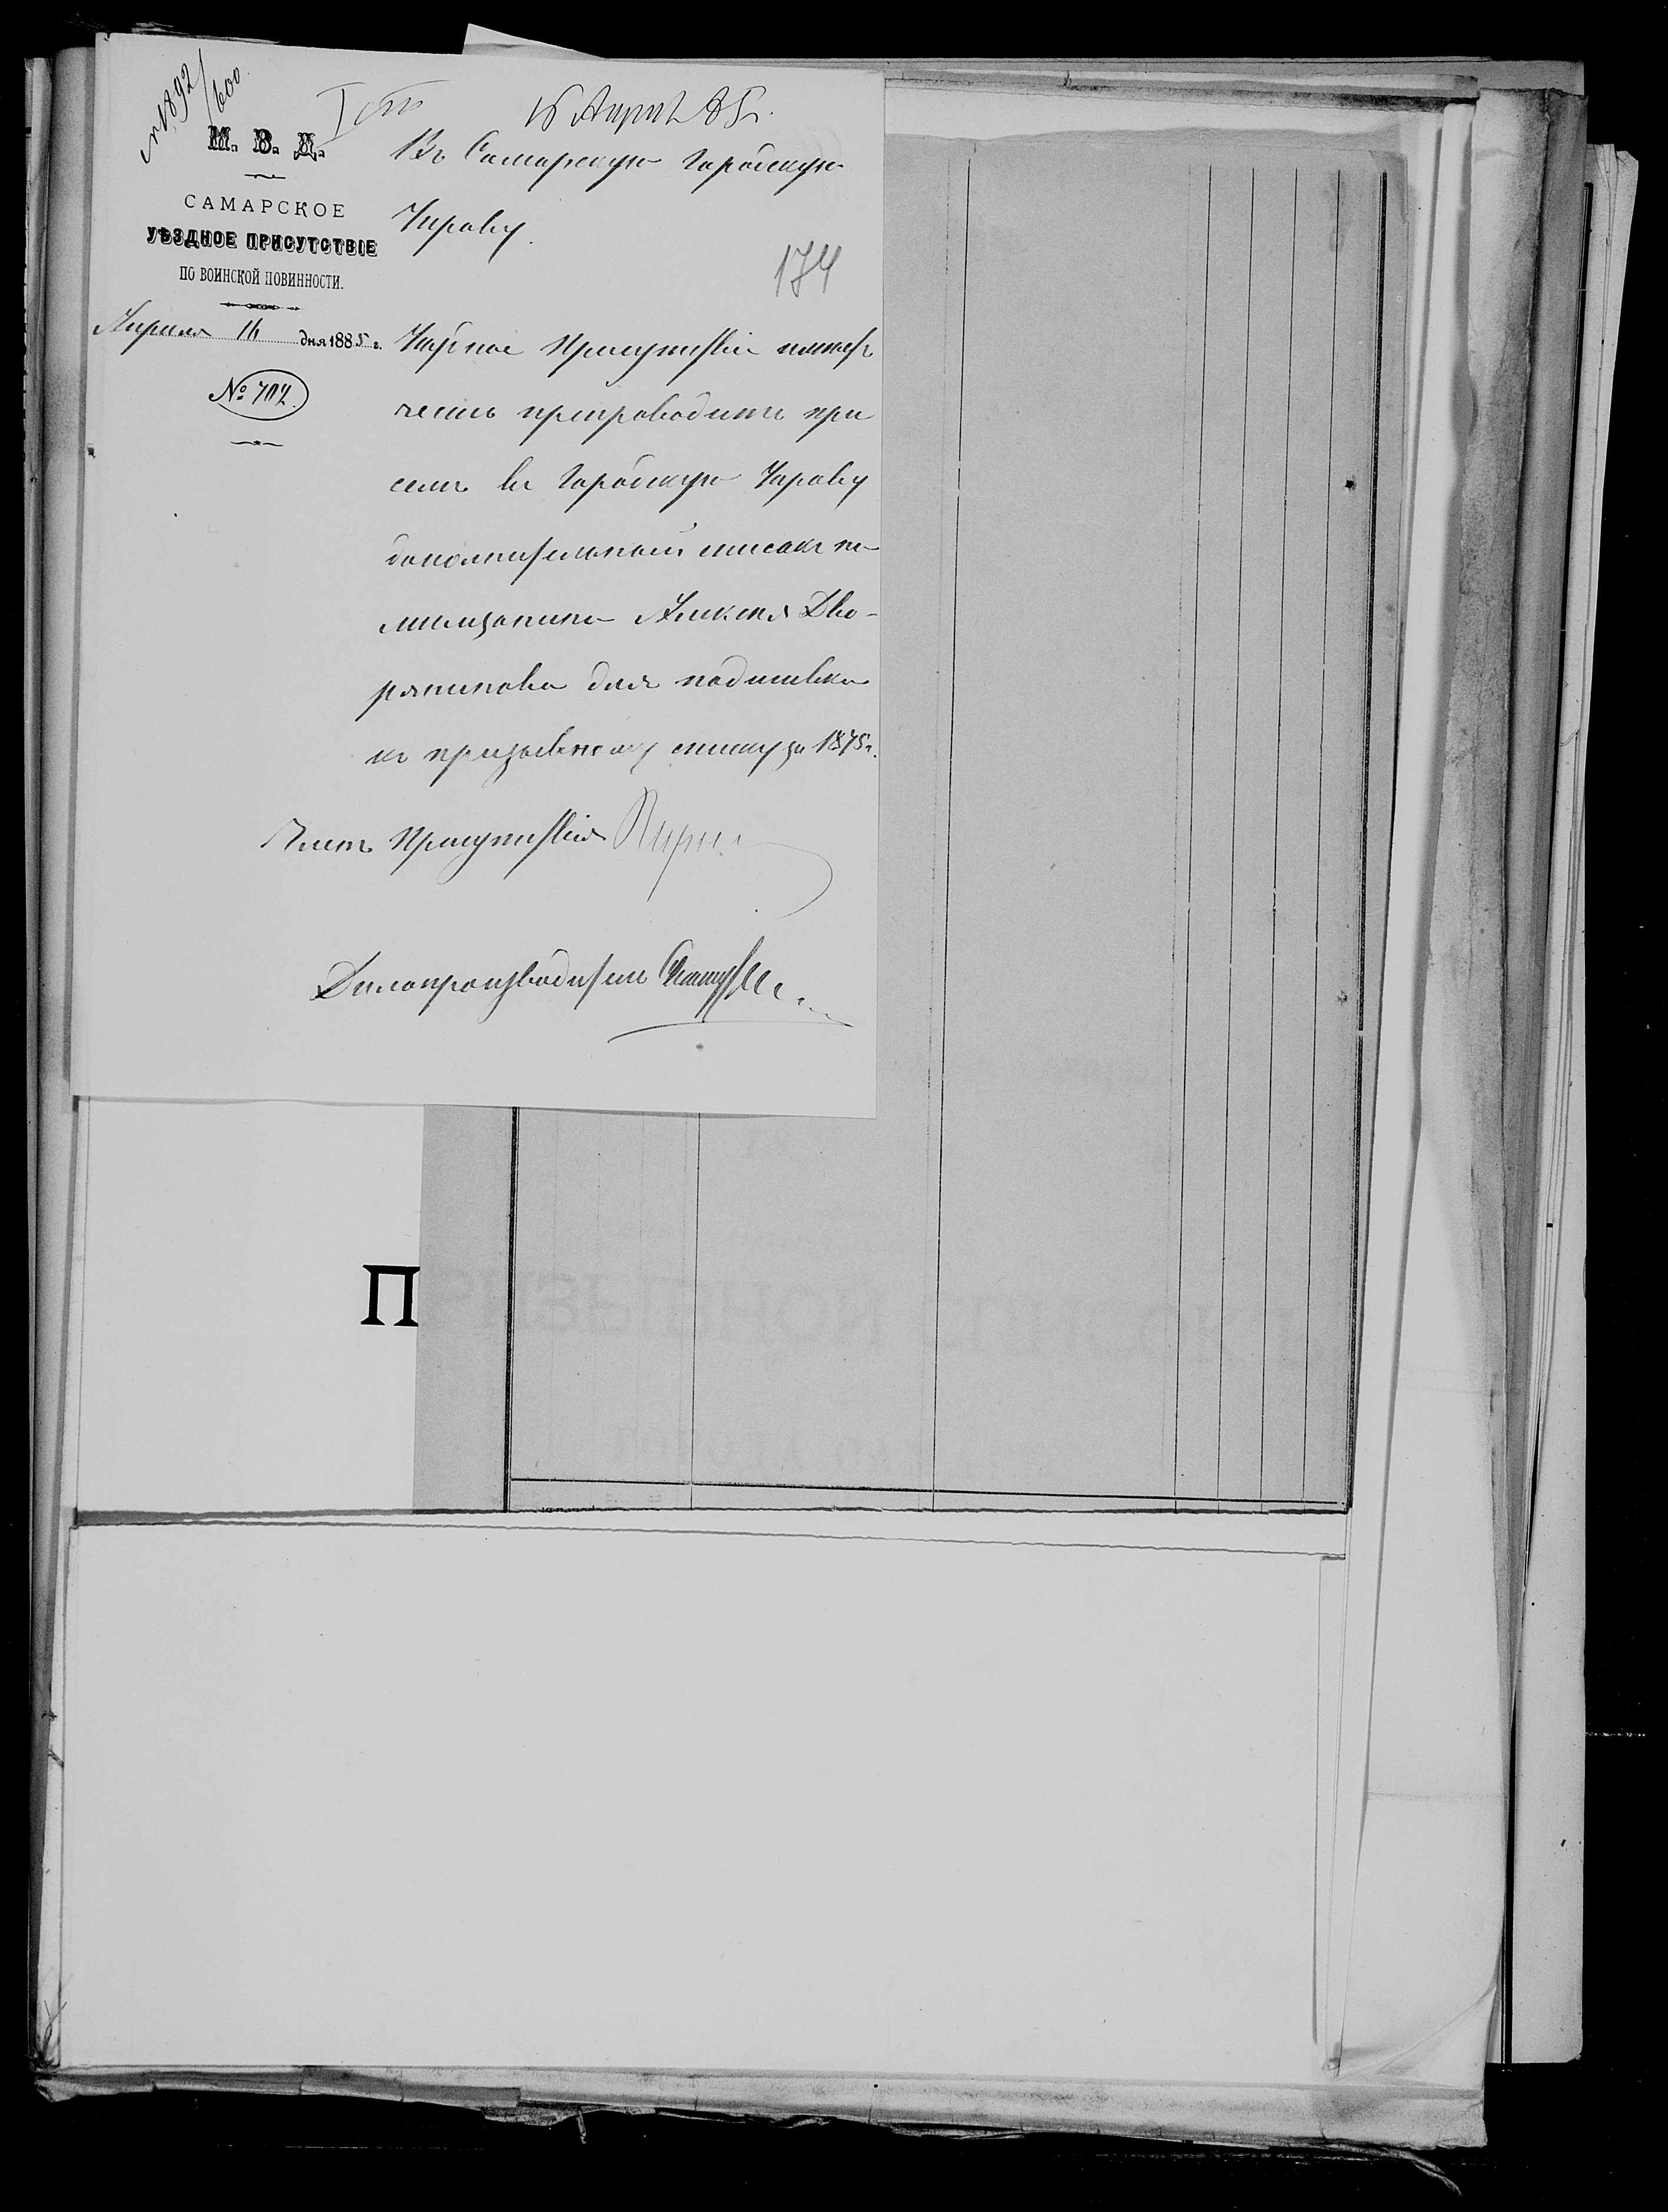 № 1892/600
I ст
16 Апрѣл 85 г.
М. В. Д.
САМАРСКОЕ
УѢЗДНОЕ ПРИСУТСТВІЕ
ПО ВОИНСКОЙ ПОВИННОСТИ.
Апрѣля 16 дня 1885 г.
№ 702.
Въ Самарскую Городскую
Управу.
174
Уѣздное Присутствіе имѣетъ
честь препроводить при
семъ въ Городскую Управу
дополнительный списокъ на
мѣщанина Алексѣя Дво-
рянинова для подшивки
къ призывному списку за 1875 г.
Членъ Присутствія
Дѣлопроизводитель
П